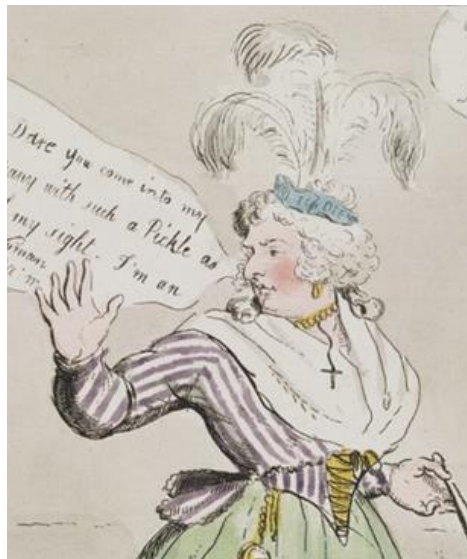 Dare you come into my
with such a Pickle as
my sight. I'm an
ICH DIE